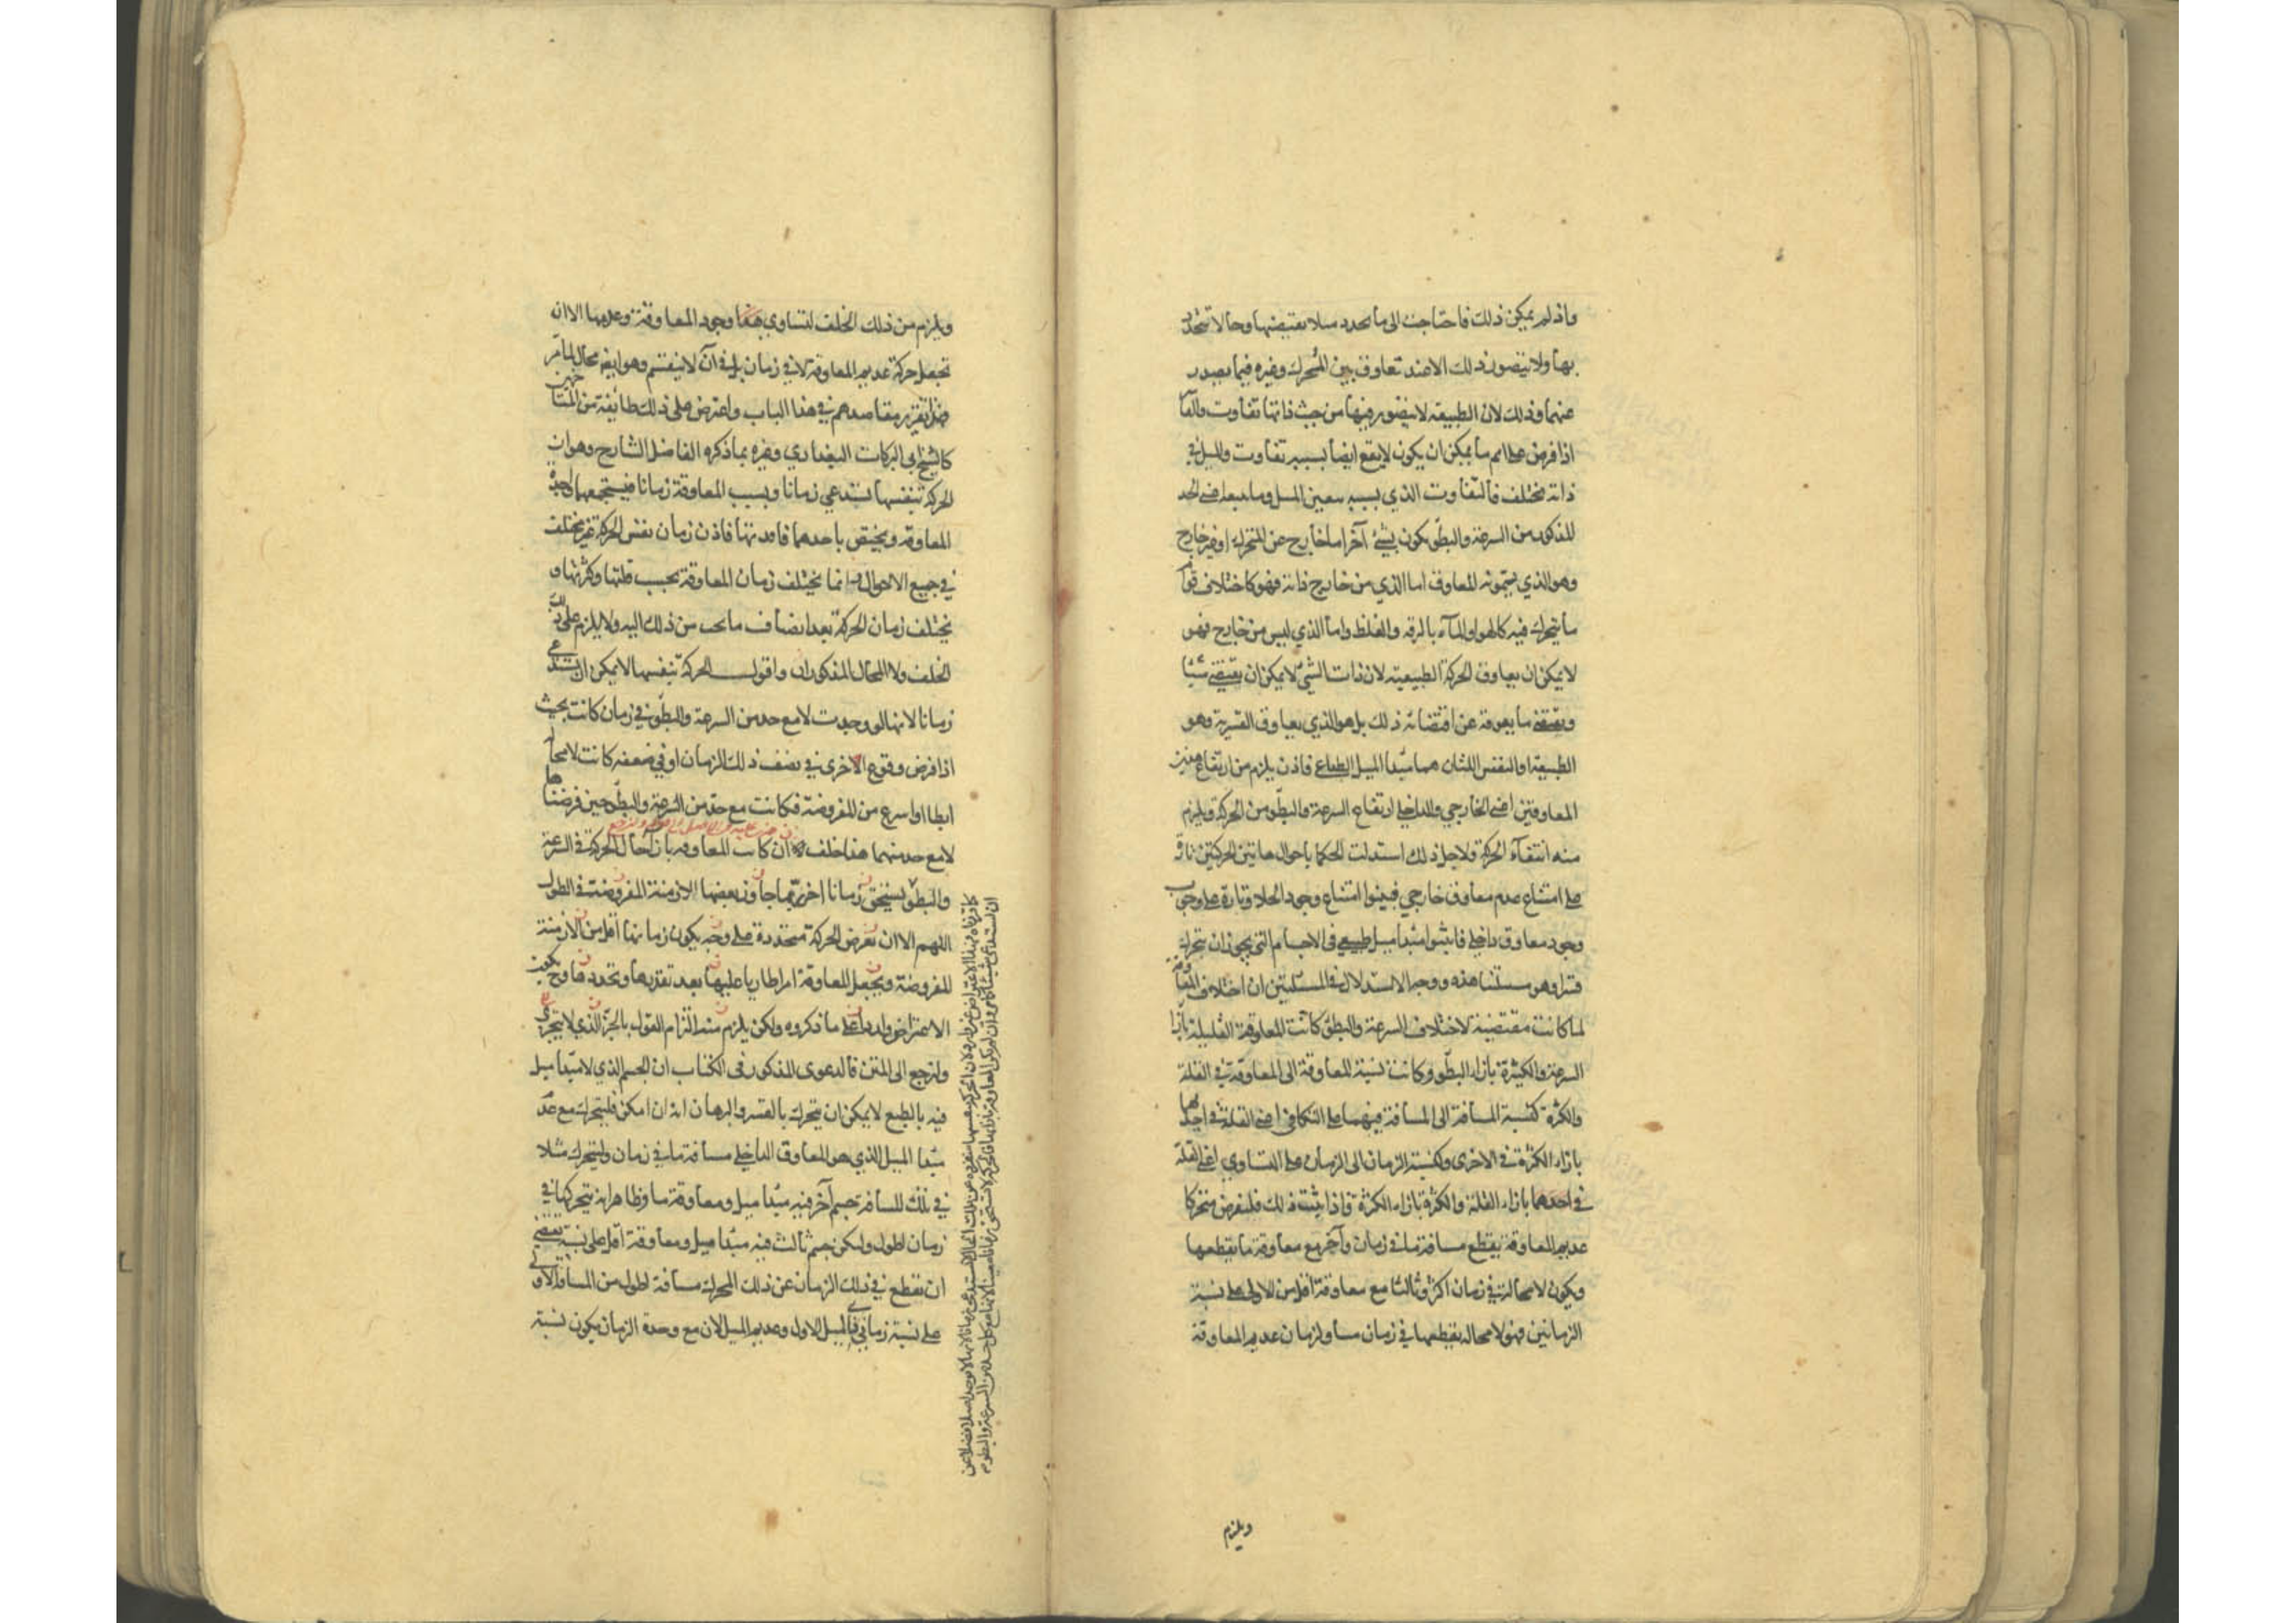 واذ لم يمكن ذلك فاحتاجت الى ما يحدد ميلا يقتضيها وحالا تتحدد
بها ولا يتصور ذلك الا عند تعاوق بين المحرك وغيره فيما يصدر
عنهما وذلك لان الطبيعة لا يتصور فيها من حيث ذاتها تفاوت والقا
اذا فرض على اتم ما يمكن ان يكون لا يقع ايضا بسببه تفاوت والميل في
ذاته مختلف فالتفاوت الذي بسببه يتعين الميل وما يتبعه اعني الحد
المذكور من السرعة والبطؤ يكون بشئ آخر اما خارج عن المتحرك او غير خارج
وهو الذي يسمونه المعاوق اما الذي من خارج ذاته فهو كاختلاف قوام
ما يتحرك فيه كالهواء والمآء بالرقه والغلظ واما الذي ليس من خارج فهو
لا يمكن ان يعاوق الحركة الطبيعية لان ذات الشئ لا يمكن ان يقتضي شيئا
ويقتضي ما يعوقه عن اقتضائه ذلك بل هو الذي يعاوق القسرية وهو
الطبيعة او النفس اللتان هما مبدأ الميل الطباعي فاذن يلزم من ارتفاع هذين
المعاوقين اعني الخارجي والداخلي ارتفاع السرعة والبطؤ من الحركة ويلزم
منه انتفآء الحركة ولاجل ذلك استدلت الحكما باحوال هاتين الحركتين تارة
على امتناع عدم معاوق خارجي فبينوا امتناع وجود الخلاء وتارة على وجوب
وجود معاوق داخلي فاثبتوا مبدأ ميل طبيعي في الاجسام التي يجوز ان تتحرك
قسرا وهو مسئلتنا هذه ووجه الاستدلال في المسئلتين ان اختلاف المعاوقة
لما كانت مقتضية لاختلاف السرعة والبطؤ كانت المعاوقة القليلة بازآء
السرعة والكثيرة بازاء البطؤ وكانت نسبة المعاوقة الى المعاوقة في القلة
والكثرة كنسبة المسافة الى المسافة فيهما على التكافئ اعني القلة في احديهما
بازاء الكثرة في الاخرى وكنسبة الزمان الى الزمان على التساوي اعني القلة
في احدهما بازاء القلة والكثرة بازاء الكثرة واذا ثبت ذلك فلنفرض متحركا
عديم المعاوقة يقطع مسافة ما في زمان وآخر مع معاوقة ما يقطعها
ويكون لا محالة في زمان اكثر وثالثا مع معاوقة اقل من الاولى على نسبة
الزمانين فهو لا محاله يقطعها في زمان مساو لزمان عديم المعاوقة
ويلزم
ويلزم من ذلك الخلف لتساوي وجود المعاوقة وعدمها الا ان
تجعل حركة عديم المعاوقة لا في زمان بل في آن لا ينقسم وهو ايضا محال لما مر
فهذا تقرير مقاصدهم في هذا الباب واعترض على ذلك طائفة من المتأخرين
كالشيخ ابي البركات البغدادي وغيره بما ذكره الفاضل الشارح وهو ان
الحركة بنفسها تستدعي زمانا وبسبب المعاوقة زمانا فيستجمعهما واجدة
المعاوقة ويختص باحدهما فاقدتها فاذن زمان نفس الحركة غير مختلف
في جميع الاحوال انما يختلف زمان المعاوقة بحسب قلتها وكثرتها و
يختلف زمان الحركة بعد انضياف ما يجب من ذلك اليه ولا يلزم على ذلك
الخلف ولا المحال المذكوران واقول الحركة بنفسها لا يمكن ان تستدعي
زمانا لانها لو وجدت لا مع حد من السرعة والبطؤ في زمان كانت بحيث
اذا فرض وقوع الاخرى في نصف ذلك الزمان او في ضعفه كانت لا محالة
ابطا او اسرع من المفروضة فكانت مع حد من السرعة والبطؤ حين فرضناها
لا مع حد منهما هذا خلف ان كانت المعاوقة بان حال الحركة في السرعة
والبطؤ يستحق زمانا اخر ربما جاوز بعضها الازمنة المفروضة في الطول
اللهم الا ان تعرض الحركة متحددة على وجه يكون زمانها اقل من الازمنة
المفروضة ويجعل المعاوقة امرا طاريا عليها بعد تقديرها وتحددها وح يكون
الاعتراض واردا على ما ذكروه ولكن يلزم منه التزام القول بالجزء الذي لا يتجزى
ولنرجع الى المتن فالدعوى المذكور في الكتاب ان الجسم الذي لا مبدأ ميل
فيه بالطبع لا يمكن ان يتحرك بالقسر والبرهان انه ان امكن فليتحرك مع عدم
مبدأ الميل الذي هو المعاوق الداخلي مسافة ما في زمان وليتحرك مثلا
في تلك المسافة جسم آخر فيه مبدأ ميل ومعاوقة ما وظاهر انه يتحركها في
زمان اطول وليكن جسم ثالث فيه مبدأ ميل ومعاوقة اقل على نسبة يقتضي
ان يقطع في ذلك الزمان عن ذلك المحرك مسافة اطول من المسافة الاولى
على نسبة زماني ذي الميل الاول وعديم الميل لان مع وحدة الزمان يكون نسبة